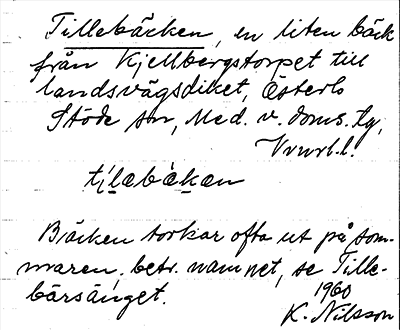 Tillebäcken, en liten bäck
från Kjellbergstorpet till
landsvägsdiket, Österlo
Stöde sn, Med. v. doms. lg,
tilabäkan
Bäcken torkar ofta ut på som-
maren, betr. namnet, se Tille-
bärsänget.
1960
K. Nilsson